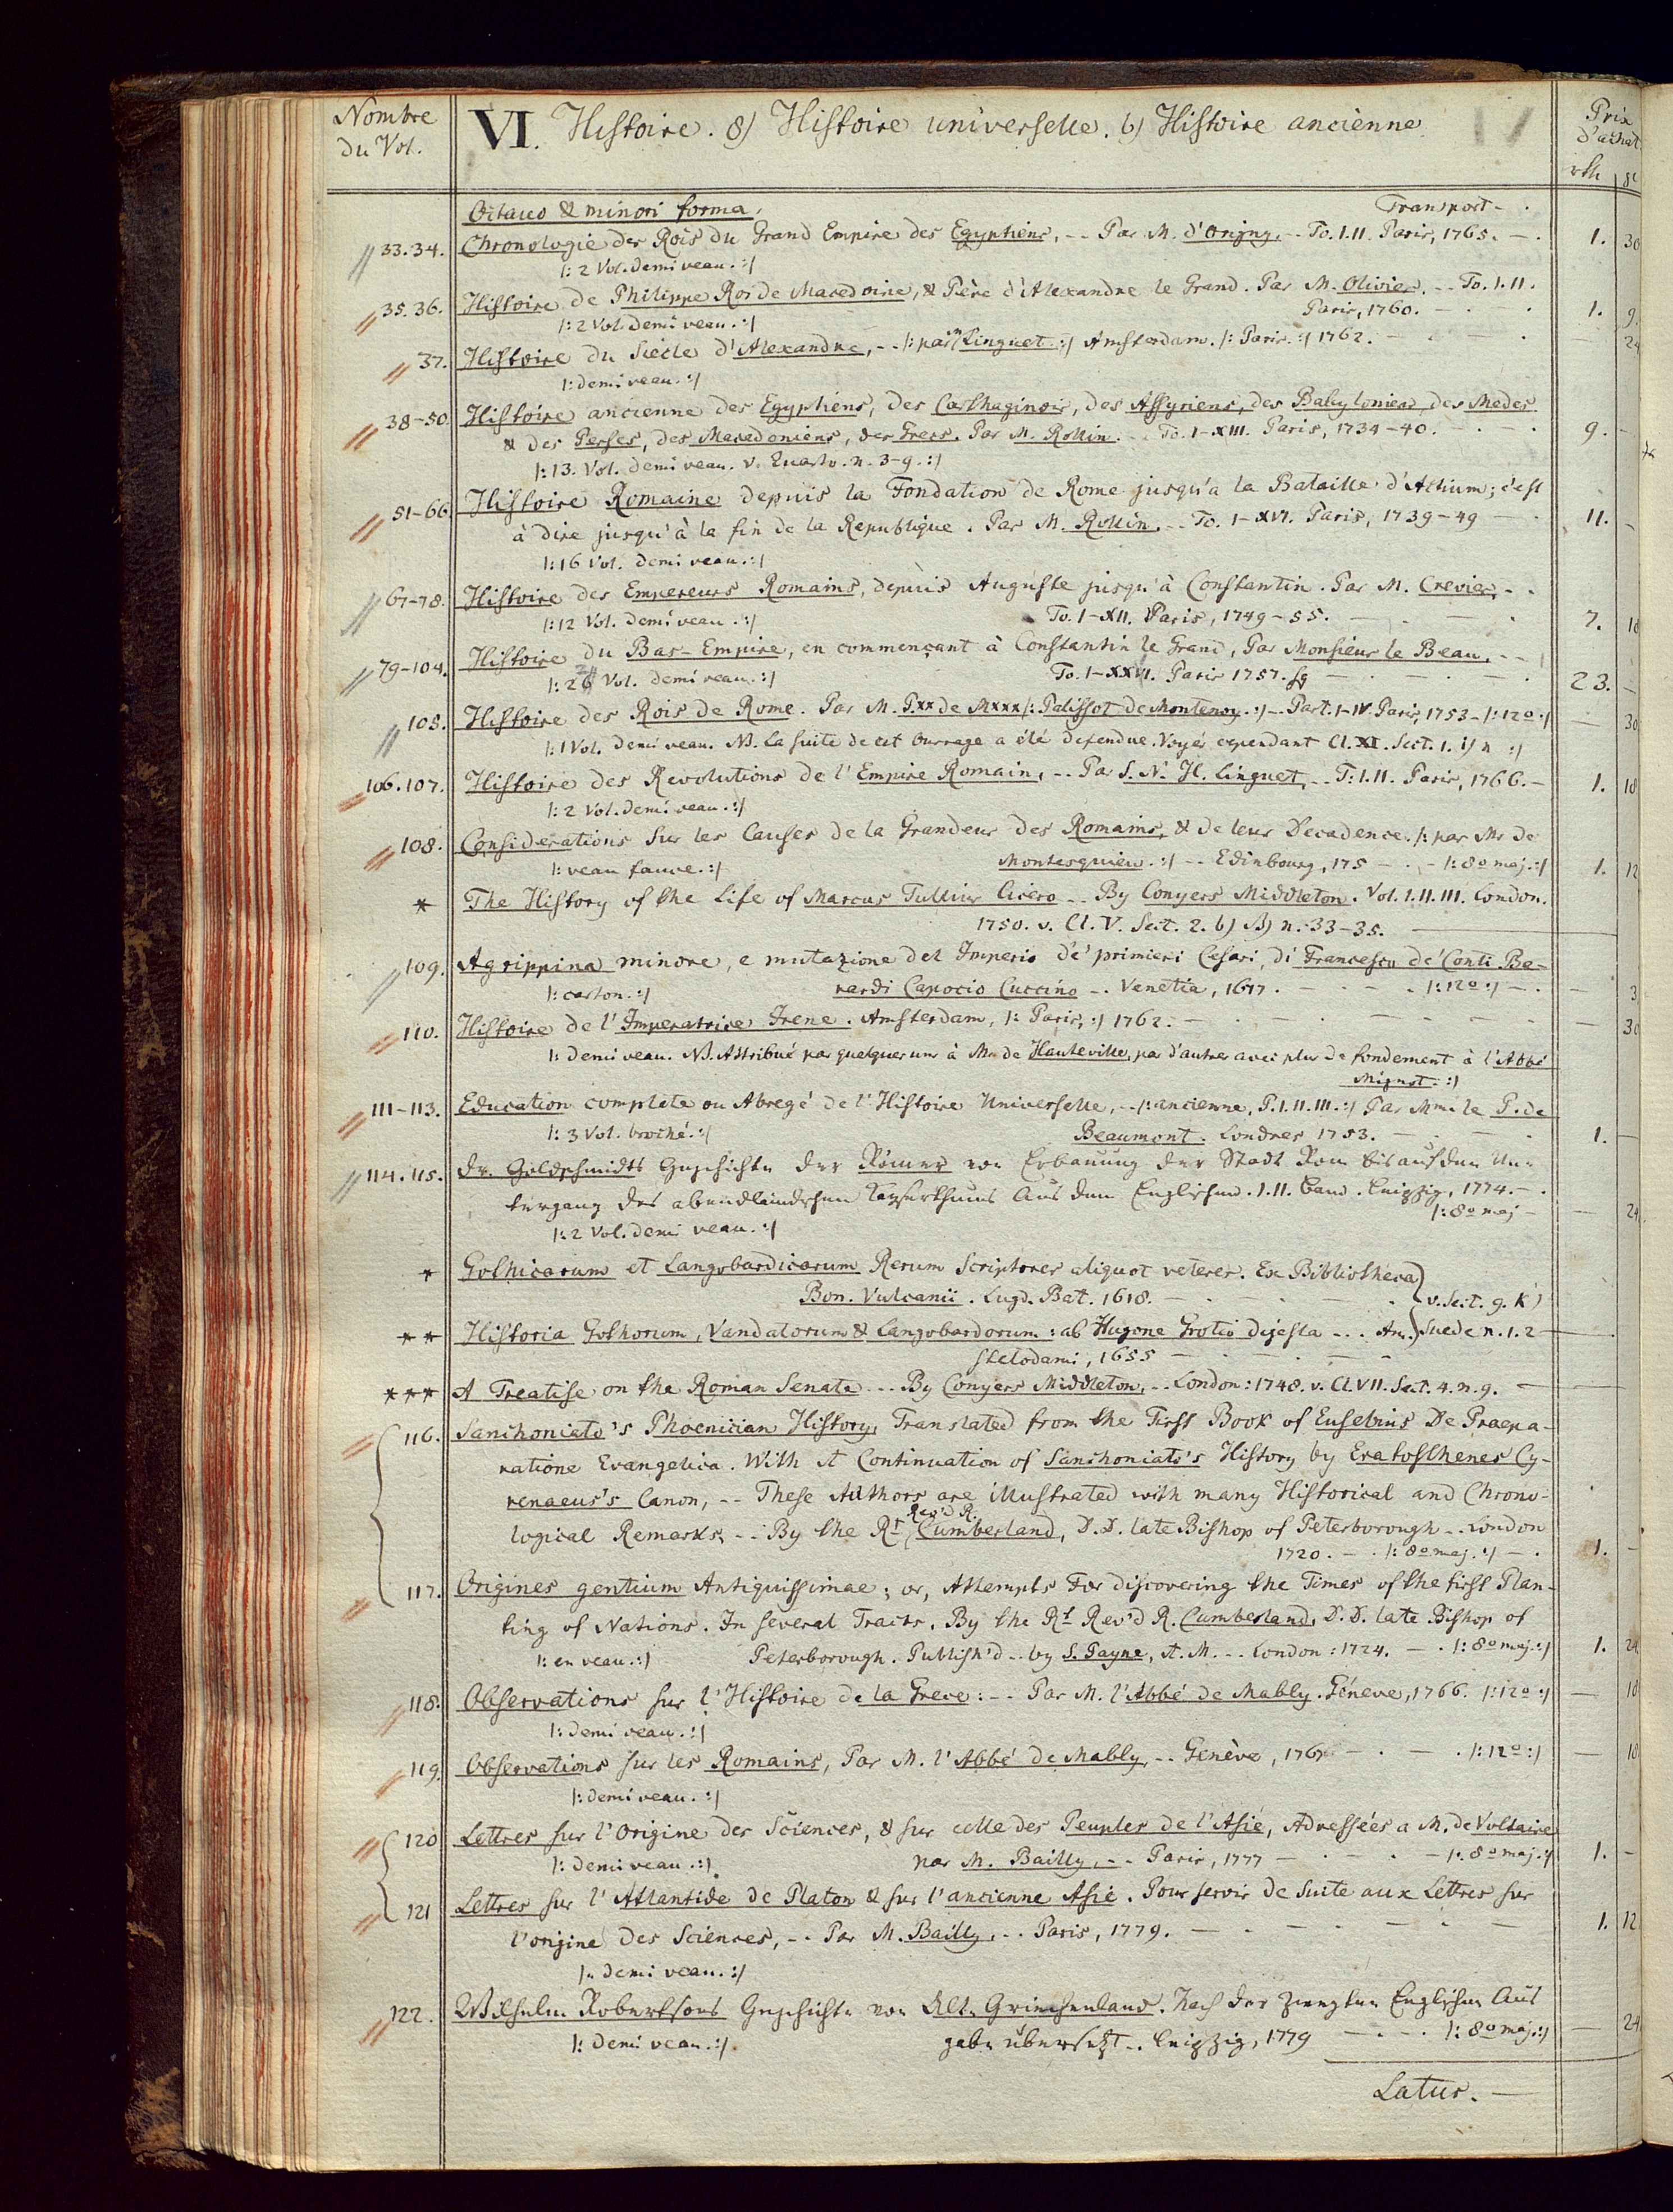 Nombre
du Vol.
VI. Histoire. 8) Histoire universelle. b) Histoire ancienne
Prix
d'achat
rth
Octavo & minori forma.
Transport - .
33.34. Chronologie des Rois du Grand Empire des Egyptiens, -- Par M. d'Origny, -- To. I.II. Paris, 1765. - . 1. 30
|: 2 Vol. demi veau. :|
35.36. Histoire de Philippe Roi de Macedoine, & Père d'Alexandre le Grand. Par M. Olivier. -- To. I.II.
|: 2 Vol. demi veau. :| Paris, 1760. - . - . 1. 9.
37. Histoire du Siècle d'Alexandre, -- |: par m Linguet :| Amsterdam. |: Paris. :| 1762. - . - . - 24
|: demi veau. :|
38-50. Histoire ancienne des Egyptiens, des Carthaginois, des Assyriens, des Babyloniens, des Medes
& des Perses, des Macedoniens, des Grecs. Par M. Rollin. -- To. I-XIII. Paris, 1734-40. - . - . 9. -
|: 13. Vol. demi veau. v. Quarto. n. 3-9. :|
51-66. Histoire Romaine depuis la Fondation de Rome jusqu'a la Bataille d'Actium; c'est
à dire jusqu'à la fin de la Republique. Par M. Rollin, -- To. I-XVI. Paris, 1739-49 - . 11. -
|: 16 Vol. demi veau. :|
67-78. Histoire des Empereurs Romains, depuis Auguste jusqu'à Constantin. Par M. Crevier, - .
|: 12 Vol. demi veau. :| To. I-XII. Paris, 1749-55. - . - . 7. 18
79-104. Histoire du Bas-Empire, en commençant à Constantin le Grand, Par Monsieur le Beau, --
|: 26 Vol. demi veau. :| To. I-XXVI. Paris 1757. sq - . - . 23. -
105. Histoire des Rois de Rome. Par M. P.xx de Mxxx |: Palissot de Montenoy. :| -- Part. I-IV. Paris, 1753 - |: 12o :| - 30
|: 1 Vol. demi veau. NB. la suite de cet Ouvrage a été defendue. Voyés cependant Cl. XI. Sect. 1. i) n :|
106.107. Histoire des Revolutions de l'Empire Romain, -- Par S. N. H. Linguet, -- T: I.II. Paris, 1766. - 1. 18
|: 2 Vol. demi veau. :|
108. Considerations sur les Causes de la Grandeur des Romains, & de leur Decadence. |: par Mr de
|: veau fauve. :| Montesquieu. :| -- Edinbourg, 175 - . - |: 8o maj. :| 1. 12
* The History of the Life of Marcus Tullius Cicero -- By Conyers Middleton. Vol. I.II.III. London.
1750. v. Cl. V. Sect. 2. b) B) n. 33-35.
109. Agrippina minore, e mutazione del Imperio de' primieri Cesari, di Francesco de' Conti Be-
|: carton. :| rardi Capocio Cuccino -- Venetia, 1677. - . - . |: 12o :| - . - 3
110. Histoire de l'Imperatrice Irene. Amsterdam, |: Paris, :| 1762. - . - . - . - - 30
|: demi veau. NB. Attribué par quelques uns à Mr. de Hauteville, par d'autres avec plus de fondement à l'Abbé
Mignot. :|
111-113. Education complete ou Abregé de l'Histoire Universelle, -- |: ancienne, P. I.II.III. :| Par Mme le P. de
|: 3 Vol. broché. :| Beaumont. Londres 1753. - . - . - 1. -
114.115. Dr. Goldschmidts Geschichte der Römer von Erbauung der Stadt Rom bis auf den Un-
tergang des abendländischen Kayserthums Aus dem Englischen. I.II. Band. Leipzig, 1774. - .
|: 8o maj - - 24
|: 2 Vol. demi veau. :|
* Gothicarum et Langobardicarum Rerum Scriptores aliquot veteres. Ex Bibliotheca
Bon. Vulcanii. Lugd. Bat. 1618. - . - . v. Sect. 9. k)
** Historia Gothorum, Vandalorum & Langobardorum: ab Hugone Grotio digesta -- . Am- Suede n. 1.2 -
stelodami, 1655 - . - . -
*** A Treatise on the Roman Senate -- By Conyers Middleton, -- London: 1748. v. Cl. VII. Sect. 4. n. 9. -
116. Sanchoniato's Phoenician History, Translated from the First Book of Eusebius De Praepa-
ratione Evangelica. With A Continuation of Sanchoniato's History by Eratosthenes Cy-
renaeus's Canon, -- These Authors are illustrated with many Historical and Chrono-
logical Remarks, -- By the Rt Rev'd R. Cumberland, D.D. late Bishop of Peterborough -- London
1720. - . |: 8o maj. :| - . 1. -
117. Origines gentium Antiquissimae; or, Attempts For discovering the Times of the first Plan-
ting of Nations. In several Tracts. By the Rt Rev'd R. Cumberland, D.D. late Bishop of
|: en veau. :| Peterborough. Publish'd -- by S. Payne, A.M. -- London: 1724. - . |: 8o maj. :| 1. 24
118. Observations sur l'Histoire de la Grece: -- Par M. l'Abbé de Mably. Géneve, 1766. |: 12o :| - 18
|: demi veau. :|
119. Observations sur les Romains, Par M. l'Abbé de Mably, -- Genève, 1767 - . - . |: 12o :| - 18
|: demi veau. :|
120 Lettres sur l'Origine des Sciences, & sur celle des Peuples de l'Asie, Adressées a M. de Voltaire
|: demi veau. :| par M. Bailly, -- Paris, 1777 - . - . - |: 8o maj. :| 1. -
121 Lettres sur l'Atlantide de Platon & sur l'ancienne Asie. Pour servir de Suite aux Lettres sur
l'origine des Sciences, -- Par M. Bailly, -- Paris, 1779. - . - . - . - 1. 12
|: demi veau. :|
122. Wilhelm Robertsons Geschichte von Alt-Griechenland. Nach der zweyten Englischen Aus
|: demi veau. :| gabe übersetzt -- Leipzig, 1779 - . - . |: 8o maj. :| - 24
Latus. -